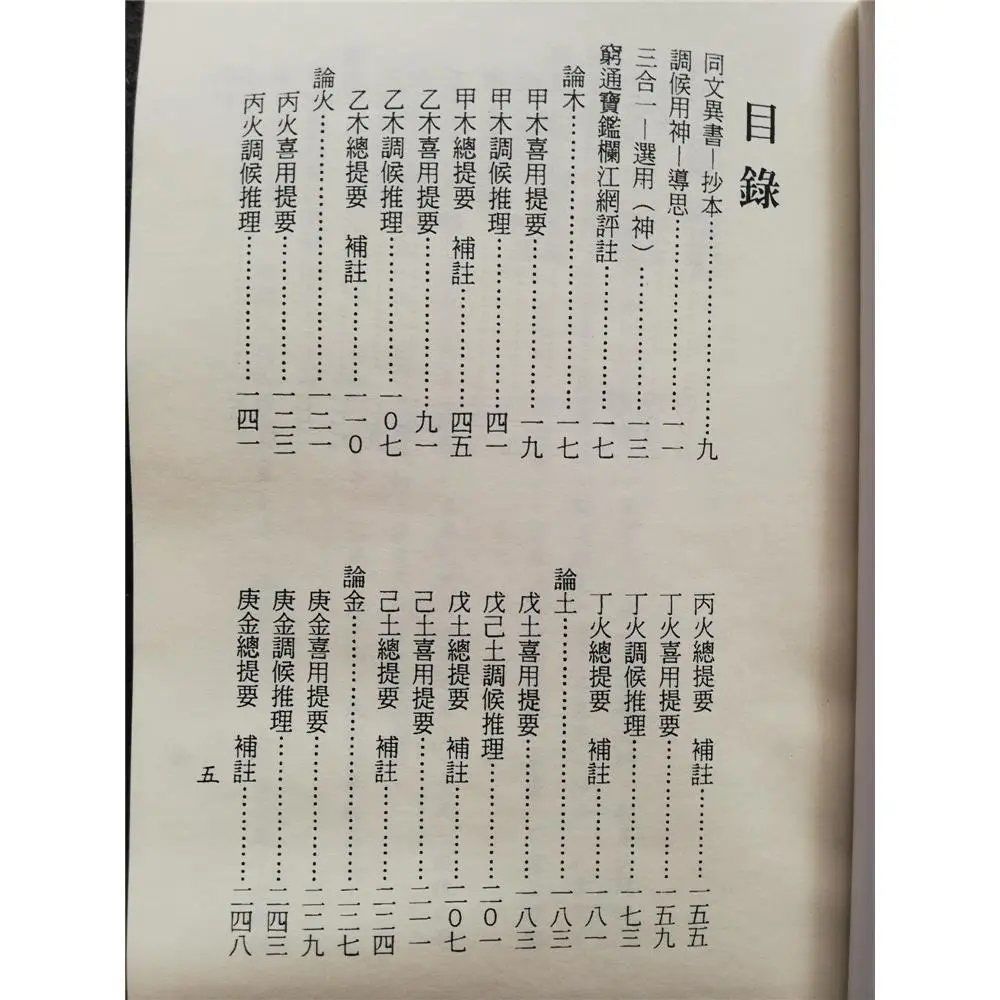 目錄
同文異書—抄本……………………九
調候用神—導思……………………一一
三合一—選用（神）……………………一三
窮通寶鑑欄江網評註……………………一七
論木……………………一七
甲木喜用提要……………………一九
甲木調候推理……………………四一
甲木總提要 補註……………………四五
乙木喜用提要……………………九一
乙木調候推理……………………一0七
乙木總提要 補註……………………一一0
論火……………………一二一
丙火喜用提要……………………一二三
丙火調候推理……………………一四一
丙火總提要 補註……………………一五五
丁火喜用提要……………………一五九
丁火調候推理……………………一七三
丁火總提要 補註……………………一八一
論土……………………一八三
戊土喜用提要……………………一八三
戊己土調候推理……………………二0一
戊土總提要 補註……………………二0七
己土喜用提要……………………二一一
己土總提要 補註……………………二二四
論金……………………二二七
庚金喜用提要……………………二二九
庚金調候推理……………………二四三
庚金總提要 補註……………………二四八
五